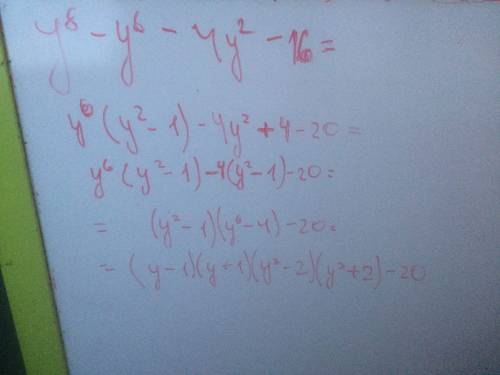 y⁸ - y⁶ - 4y² - 16 =
y⁶ (y² - 1) - 4y² + 4 - 20 =
y⁶ (y² - 1) - 4(y² - 1) - 20 =
= (y² - 1)(y⁶ - 4) - 20 =
= (y - 1)(y + 1)(y³ - 2)(y³ + 2) - 20